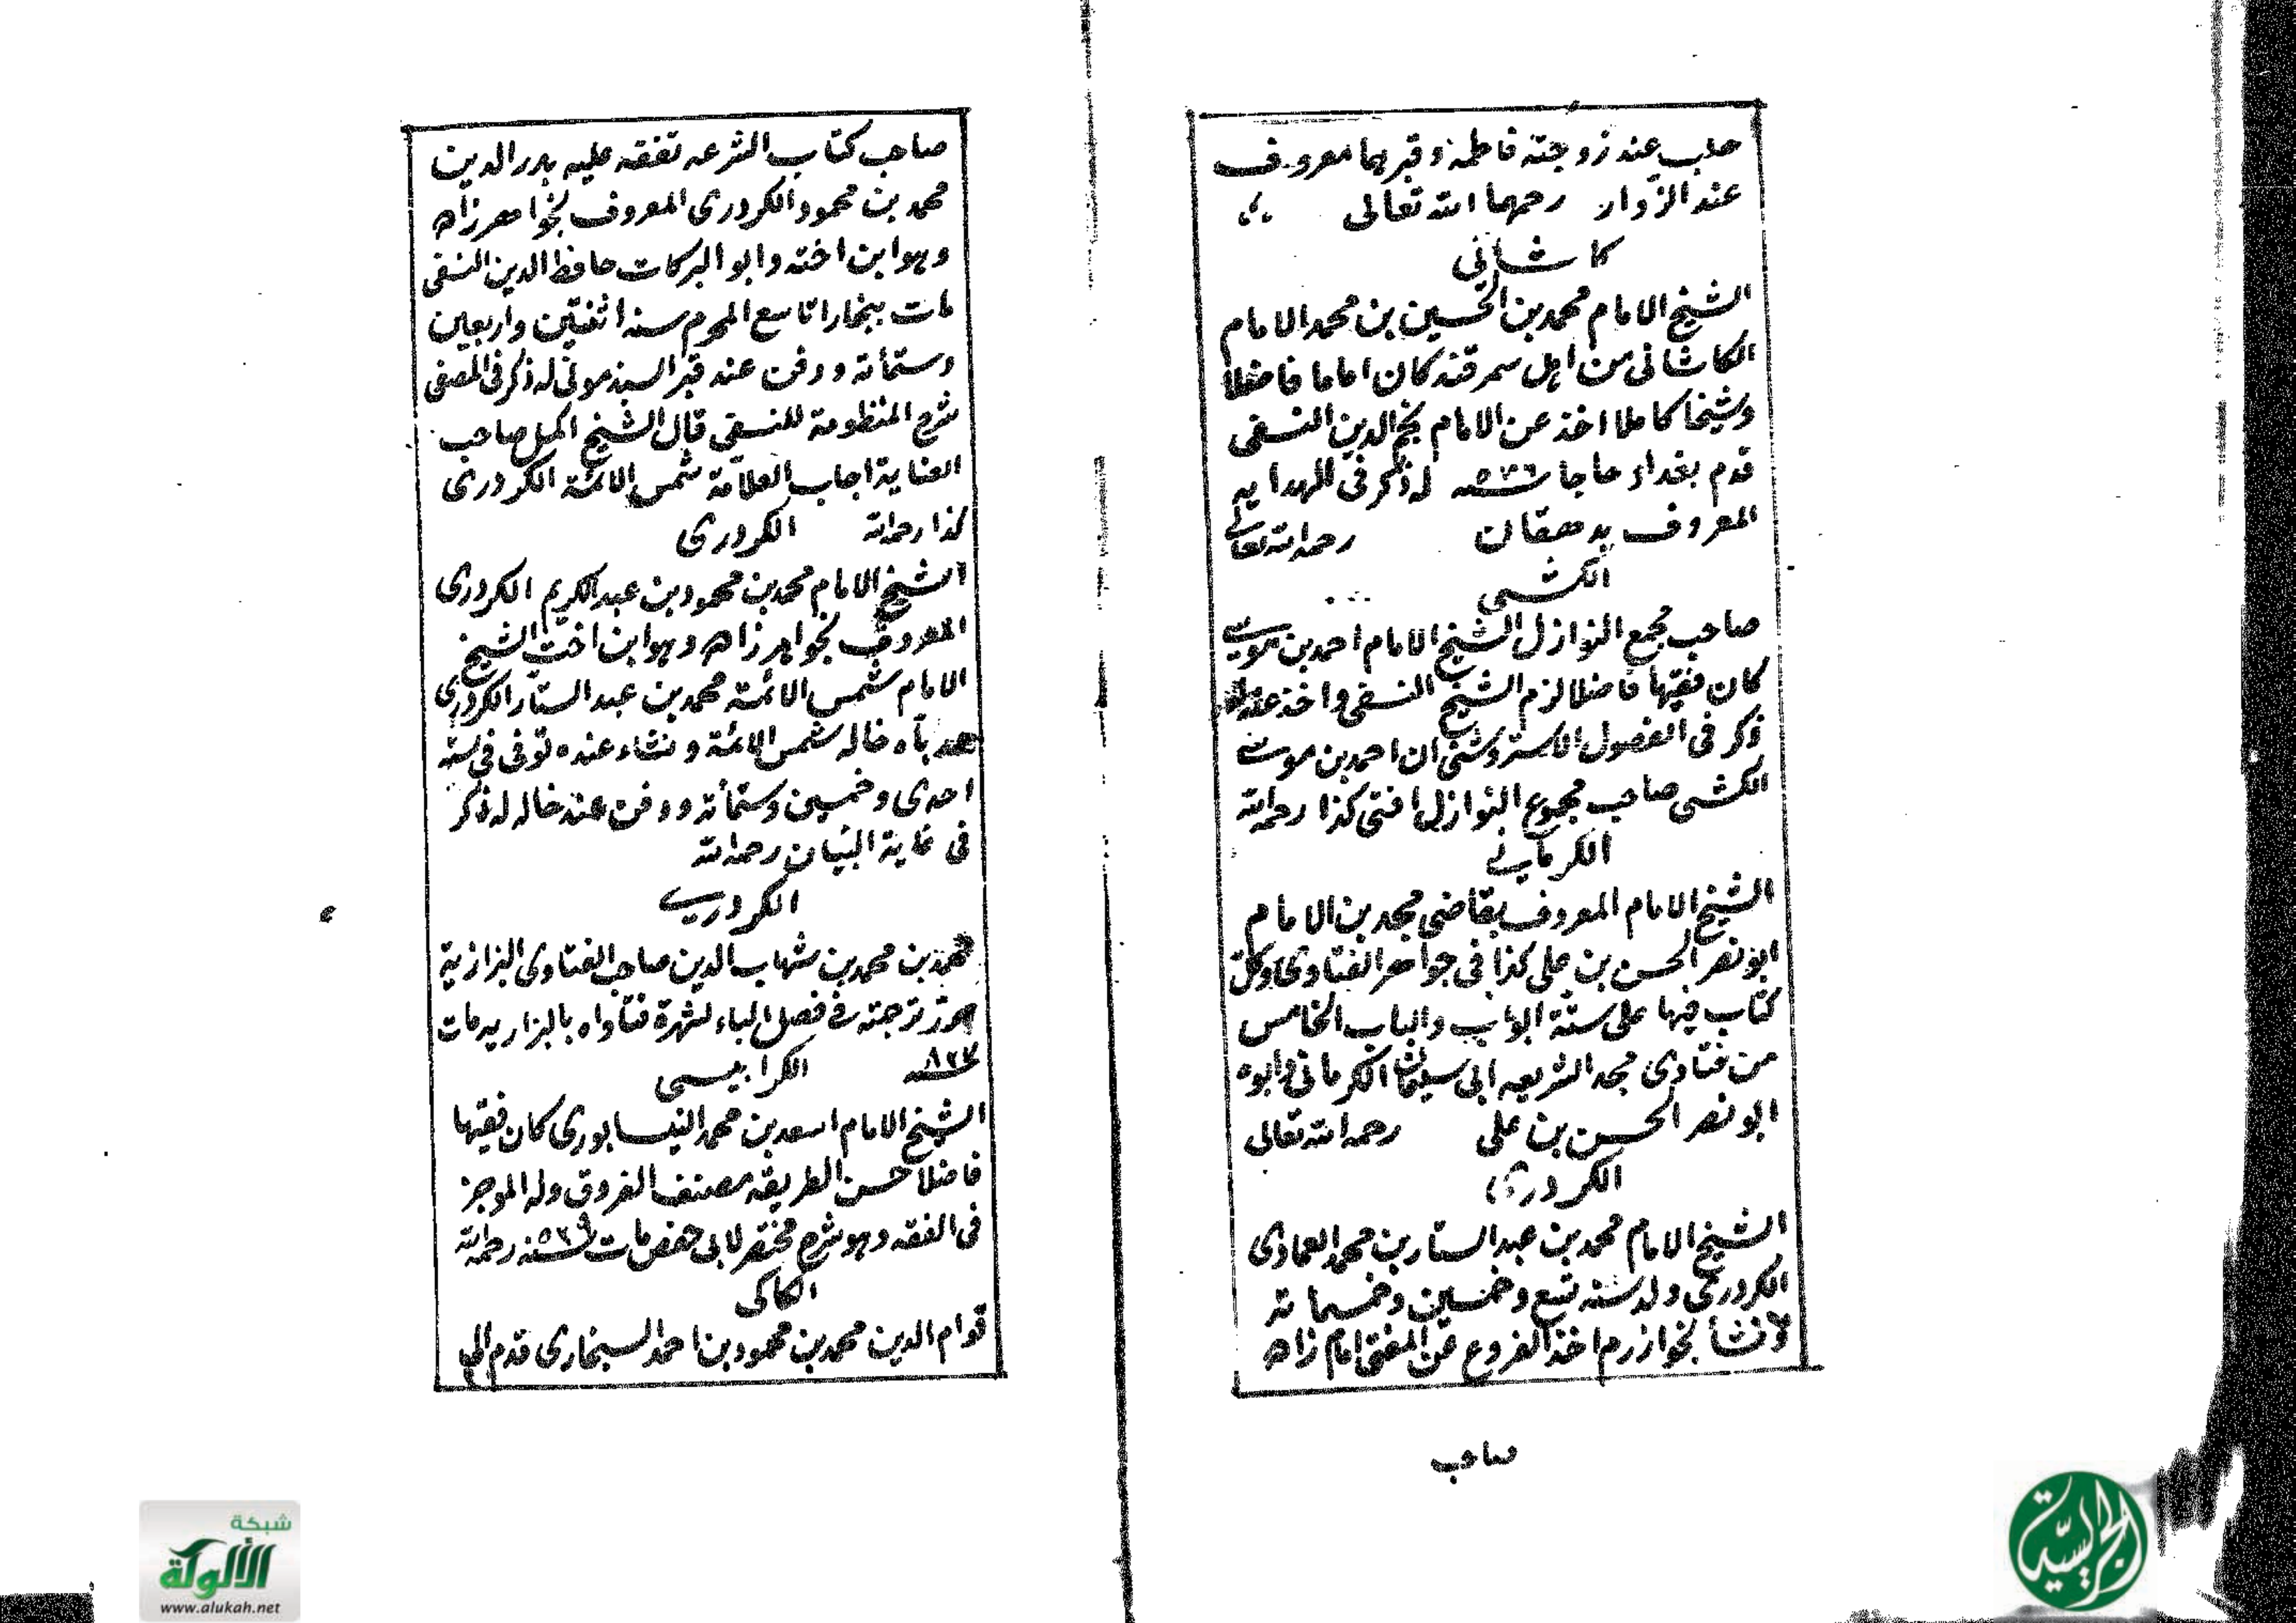 حلب عند زوجته فاطمة وقبرهما معروف
عند الزوار رحمهما الله تعالى
كاشاني
الشيخ الامام محمد بن الحسين بن محمد الامام
الكاشاني من اهل سمرقند كان اماما فاضلا
وشيخا كاملا اخذ عن الامام نجم الدين النسفي
قدم بغداد حاجا سنة ٥٧٦ له ذكر في الهدايه
المعروف بدهقان رحمه الله تعالى
الكشي
صاحب مجمع النوازل الشيخ الامام احمد بن موسى
كان فقيها فاضلا لزم الشيخ النسفي واخذ عنه
ذكر في الفصول الاستروشني ان احمد بن موسى
الكشي صاحب مجموع النوازل افتى كذا رحمه الله
الكرماني
الشيخ الامام المعروف بقاضي محمد بن الامام
ابو نصر الحسن بن علي كذا في جواهر الفتاوى وكل
كتاب فيها على ستة ابواب والباب الخامس
من فتاوى مجد الشريعه ابي سليمان الكرماني وابوه
ابو نصر الحسن بن علي رحمه الله تعالى
الكردري
الشيخ الامام محمد بن عبد الستار بن محمد العمادي
الكردري ولد سنه تسع وخمسين وخمسمائة
نشأ بخوارزم اخذ الفروع عن المفتي امام زاه
صاحب
صاحب كتاب الشرعه تفقه عليه بدر الدين
محمد بن محمود الكردري المعروف بخواهرزاه
وهو ابن اخته وابو البركات حافظ الدين النسفي
مات ببخارا تاسع المحرم سنه اثنتين واربعين
وستمائة ودفن عند قبر السبذموني له ذكر في المصفى
شرح المنظومة للنسفي قال الشيخ اكمل صاحب
العناية اجاب العلامة شمس الائمة الكردري
كذا رحمه الله الكردري
الشيخ الامام محمد بن محمود بن عبد الكريم الكردري
المعروف بخواهرزاه وهو ابن اخت الشيخ
الامام شمس الائمة محمد بن عبد الستار الكردري
خاله شمس الائمة ونشاء عنده توفى في سنة
احدى وخمسين وستمائة ودفن عند خاله له ذكر
في غاية البيان رحمه الله
الكردري
محمد بن محمد بن شهاب الدين صاحب الفتاوى البزازية
ترجمته في فصل الباء لشهرة فتاواه بالبزازيه مات
سنة ٨٢٧ الكرابيسي
الشيخ الامام اسعد بن محمد النيسابوري كان فقيها
فاضلا حسن الطريقه مصنف الفروق وله الموجز
في الفقه وهو شرح مختصر لابي حفص مات سنة ٥٣٩ رحمه الله
الكاكي
قوام الدين محمد بن محمود بن احمد السنجاري قدم الى
شبكة
الألوكة
www.alukah.net